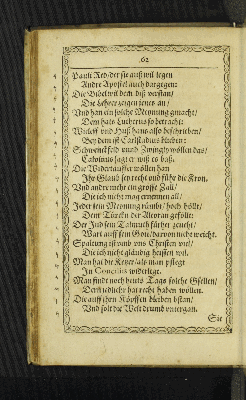 62
Pauli Red/der sie auß wil legen
Andre Apostel auch dargegen:
Die Bibel wil dem diß verstan/
Die Lehr zeigen jenes an/
Und han ein solche Meynung gmacht/
Dem hats Lutherus so betracht:
Wicleff und Huß hans also beschrieben/
Bey dem ist Carlstadius blieben:
Schwenckfeld und Zwingly wöllen das/
Calvinus sagt er wiß es baß.
Die Widertauffer wöllen han
Ihr Glaub sey recht und führ die Kron.
Und andre mehr ein grosse Zall/
Die ich nicht mag ernennen all/
Jeder sein Meynung rühmt/hoch hölt/
Dem Türcken der Alcoran gefölt:
Der Jud sein Talmuth fürher zeucht/
Wart auff sein Gott/darvon nicht weicht.
Spaltung ist vmb vns Christen viel/
Die ich nicht gläubig heissen wil.
Man hat die Ketzer/als man pflegt
In Conciliis widerlegt.
Man findt noch heuts Tags solche Gsellen/
Der friedlich hat recht haben wöllen.
Die auff ihrn Köpffen bleiben bstan/
Und solt die Welt drumb vntergan.
Sie